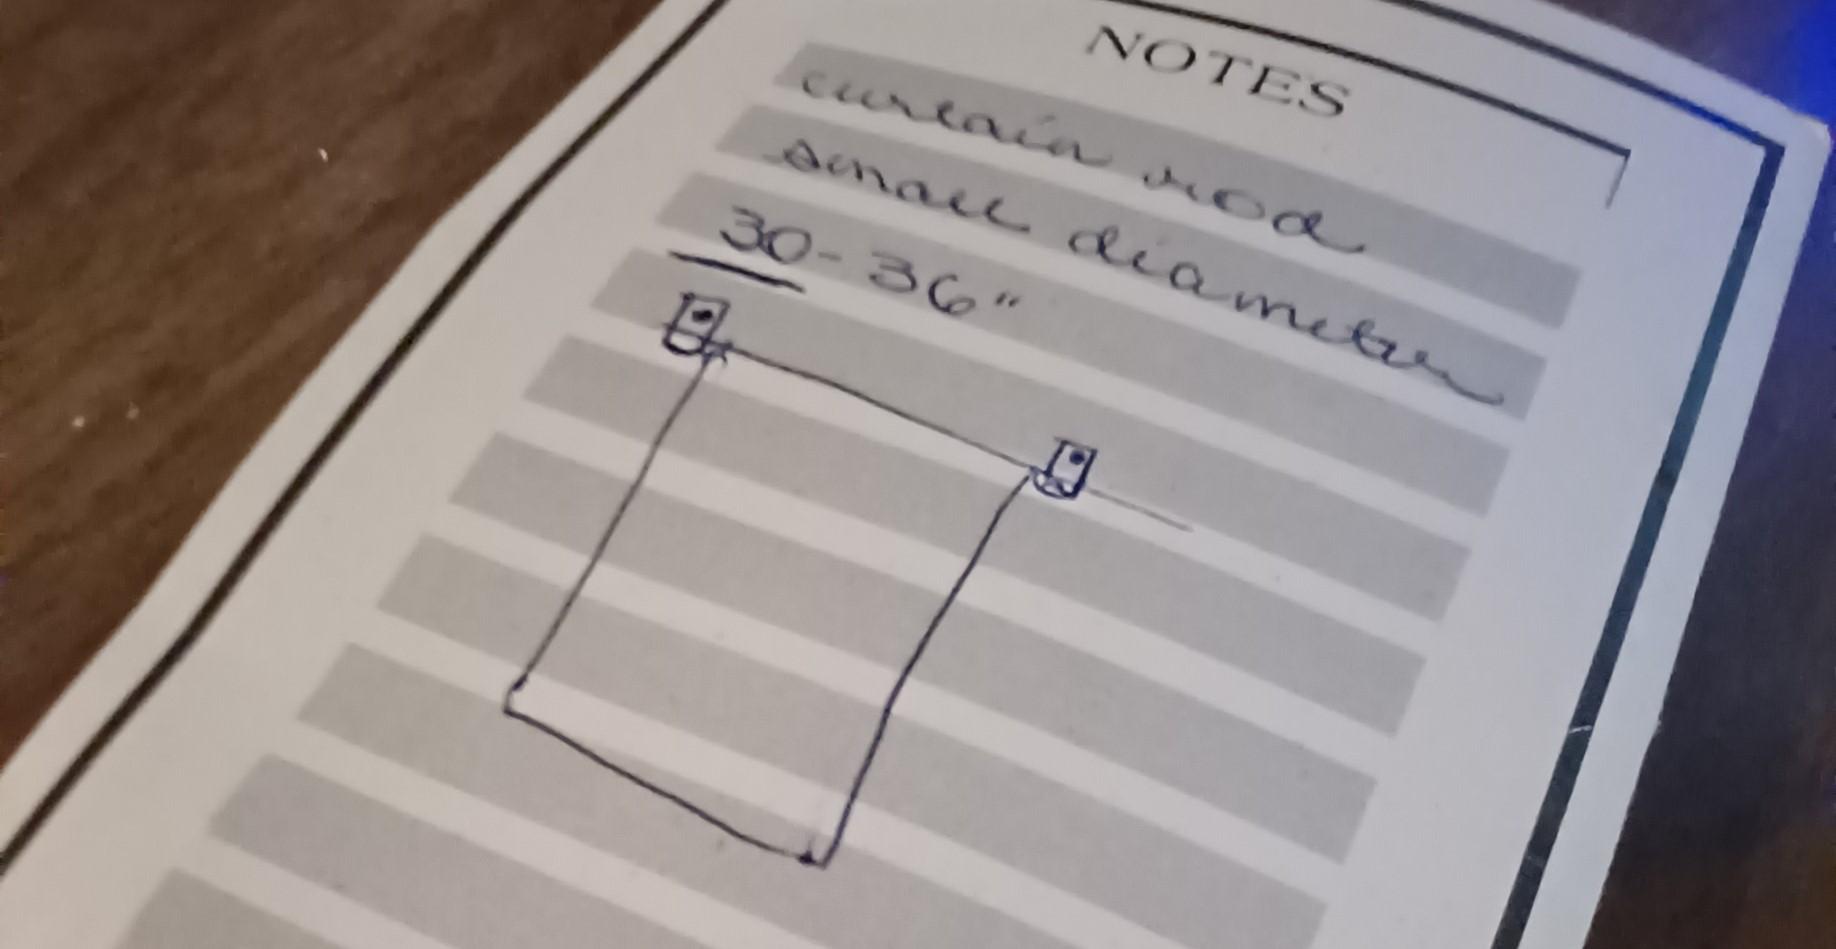 NOTES
curtain rod
small diameter
30-36"